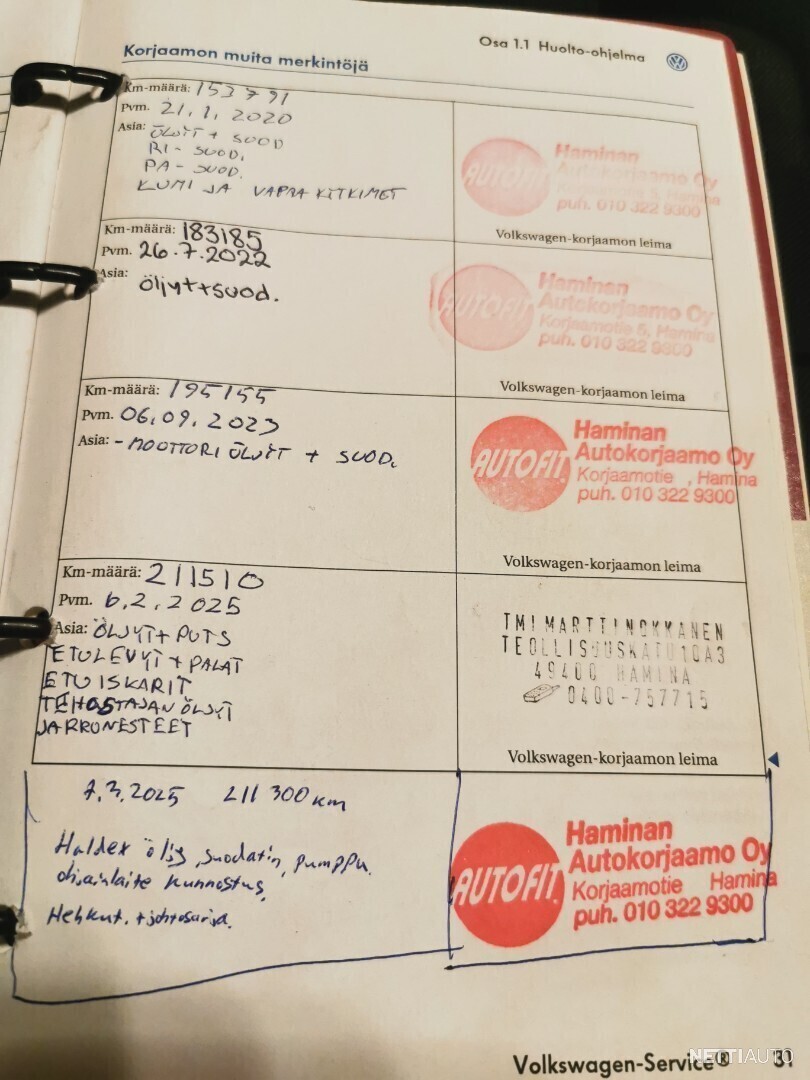 Osa 1.1 Huolto-ohjelma
Korjaamon muita merkintöjä
Km-määrä: 153791
Pvm. 21.1.2020
Asia: ÖLJYT + SUOD
RI-SUOD.
PA-SUOD.
KUMI JA VAPAA KITKIMET
AUTOFIT
Haminan
Autokorjaamo Oy
Hamina
puh. 010 322 9300
Volkswagen-korjaamon leima
Km-määrä: 183185
Pvm. 26.7.2022
Asia: öljyt+suod.
AUTOFIT
Haminan
Autokorjaamo Oy
Korjaamotie 5, Hamina
puh. 010 322 9300
Volkswagen-korjaamon leima
Km-määrä: 195155
Pvm. 06.09.2023
Asia: -MOOTTORI ÖLJYT + SUOD.
AUTOFIT.
Haminan
Autokorjaamo Oy
Korjaamotie , Hamina
puh. 010 322 9300
Volkswagen-korjaamon leima
Km-määrä: 211510
Pvm. 6.2.2025
Asia: ÖLJYT+PUTS
ETULEVYT + PALAT
ETUISKARIT
TEHOSTAJAN ÖLJYT
JARRUNESTEET
TMI MARTTI NOKKANEN
TEOLLISUUSKATU 10A3
49400 HAMINA
0400-757715
Volkswagen-korjaamon leima
7.3.2025 211 300 km
Haldex öljy, suodatin, pumppu.
ohjainlaite kunnostus,
Hehkut. + johtosarja.
AUTOFIT.
Haminan
Autokorjaamo Oy
Korjaamotie Hamina
puh. 010 322 9300
Volkswagen-Service® 31
NETTIAUTO